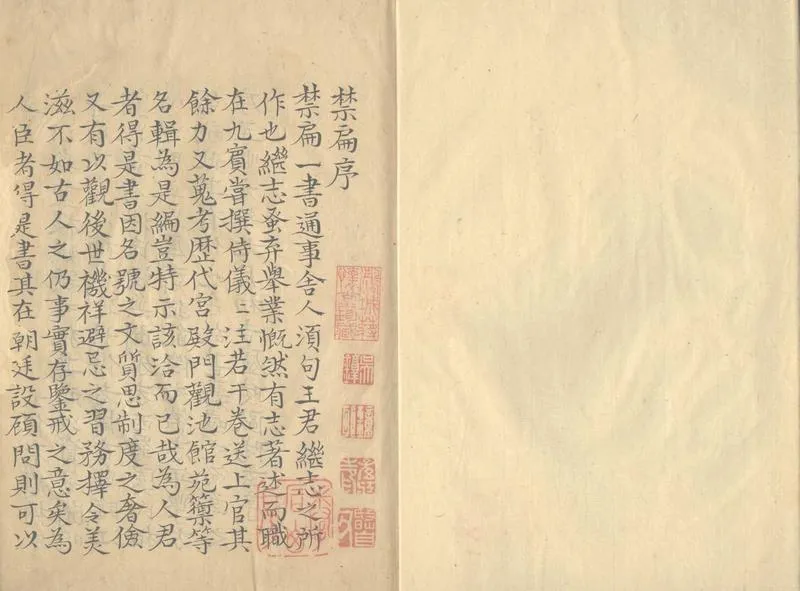 禁扁序
禁扁一書通事舎人須句王君繼志之所
作也繼志蚤弃舉業慨然有志著述而職
在九賔嘗撰侍儀〻注若干卷送上官其
餘力又蒐考歴代宮殿門觀池館苑籞等
名輯為是編豈特示該洽而已哉為人君
者得是書因名號之文質思制度之奢儉
又有以觀後世禨祥避忌之習務擇令美
滋不如古人之仍事實存鑒戒之意矣為
人臣者得是書其在朝廷設顧問則可以